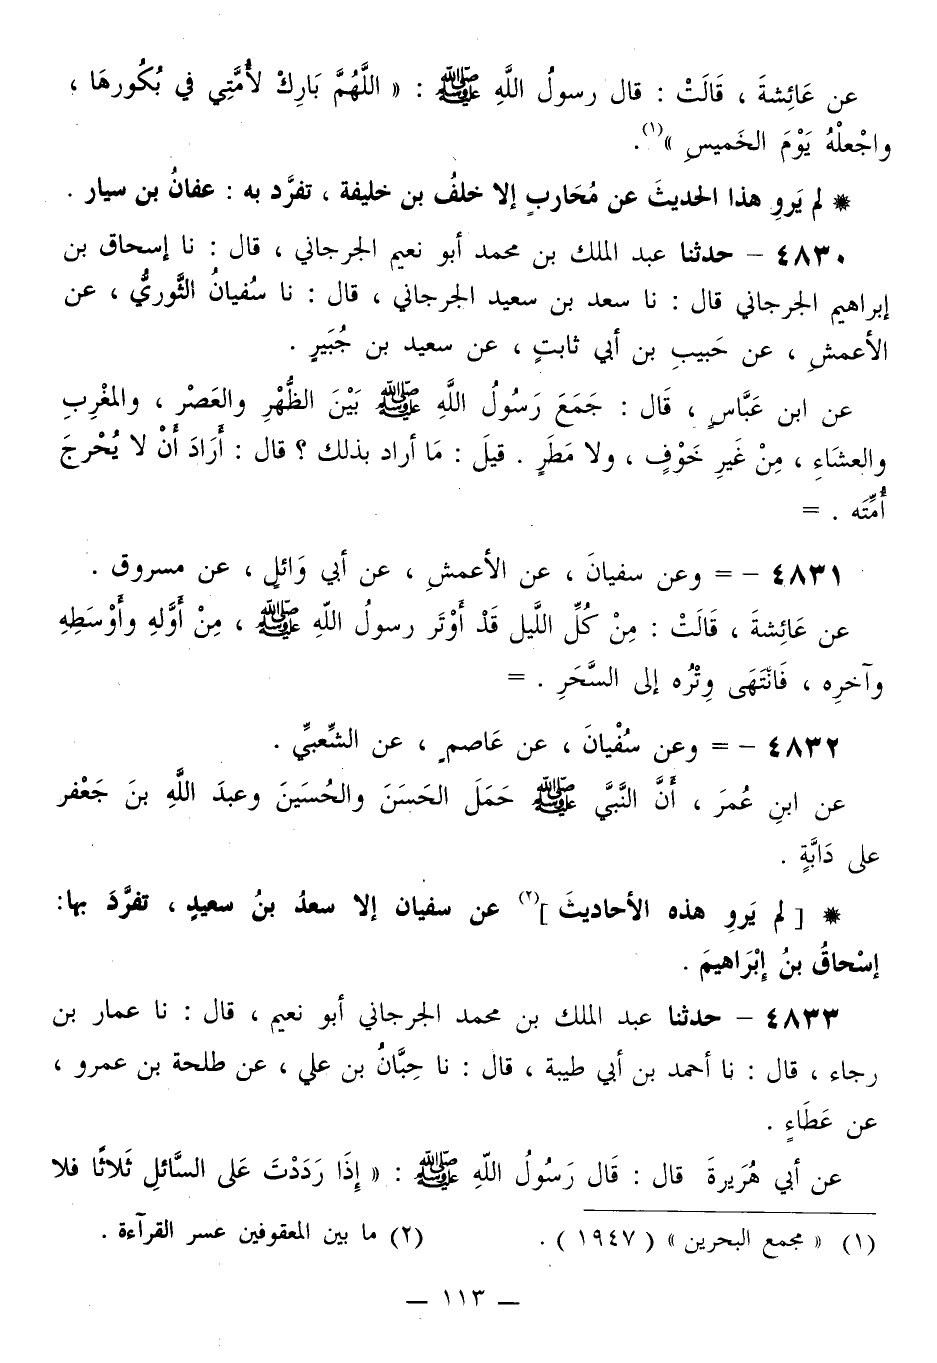 عن عَائِشةَ ، قَالَتْ : قال رسولُ اللَّهِ ﷺ : « اللَّهُمَّ بَارِكْ لأُمَّتِي في بُكُورهَا ،
واجْعلْهُ يَوْمَ الخَميسِ »(١).
* لم يَروِ هذا الحديثَ عن مُحَاربٍ إلا خلفُ بن خليفة ، تفرَّد به : عفانُ بن سيار .
٤٨٣٠ – حدثنا عبد الملك بن محمد أبو نعيم الجرجاني ، قال : نا إسحاق بن
إبراهيم الجرجاني قال : نا سعد بن سعيد الجرجاني ، قال : نا سُفيانُ الثَّوريُّ ، عن
الأعمشِ ، عن حَبيبِ بن أبي ثابتٍ ، عن سعيد بن جُبَيرٍ .
عن ابن عَبَّاسٍ ، قَال : جَمَعَ رَسُولُ اللَّهِ ﷺ بَيْنَ الظُّهْرِ والعَصْر ، والمغْربِ
والعشَاءِ ، مِنْ غَيرِ خَوْفٍ ، ولا مَطَرٍ . قيلَ : مَا أراد بذلك ؟ قال : أَرَادَ أَنْ لا يُحْرجَ
أُمَّتَه . =
٤٨٣١ – = وعن سفيانَ ، عن الأعمشِ ، عن أبي وَائلٍ ، عن مسروق .
عن عَائشةَ ، قَالَتْ : مِنْ كُلِّ الليل قَدْ أَوْتَر رسولُ اللّهِ ﷺ ، مِنْ أَوَّلهِ وأَوْسَطِهِ
وآخرِه ، فَانْتَهَى وِتْرُه إلى السَّحَرِ . =
٤٨٣٢ – = وعن سُفْيانَ ، عن عَاصمٍ ، عن الشّعبيِّ .
عن ابنِ عُمرَ ، أَنَّ النَّبيَّ ﷺ حَمَلَ الحَسَنَ والحُسَينَ وعبدَ اللَّهِ بنَ جَعْفر
على دَابَّةٍ .
* [ لم يَروِ هذه الأحاديثَ ](٢) عن سفيان إلا سعدُ بنُ سعيدٍ ، تفرَّدَ بها:
إسْحاقُ بنُ إبْرَاهيمَ .
٤٨٣٣ – حدثنا عبد الملك بن محمد الجرجاني أبو نعيم ، قال : نا عمار بن
رجاء ، قال : نا أحمد بن أبي طيبة ، قال : نا حِبَّانُ بن علي ، عن طلحة بن عمرو ،
عن عَطَاءٍ .
عن أبي هُرَيرةَ قال : قَال رَسُولُ اللّهِ ﷺ : « إِذَا رَدَدْتَ عَلى السَّائلِ ثَلاثًا فلا
(١) « مجمع البحرين » ( ١٩٤٧ ) . (٢) ما بين المعقوفين عسر القرآءة .
– ١١٣ –